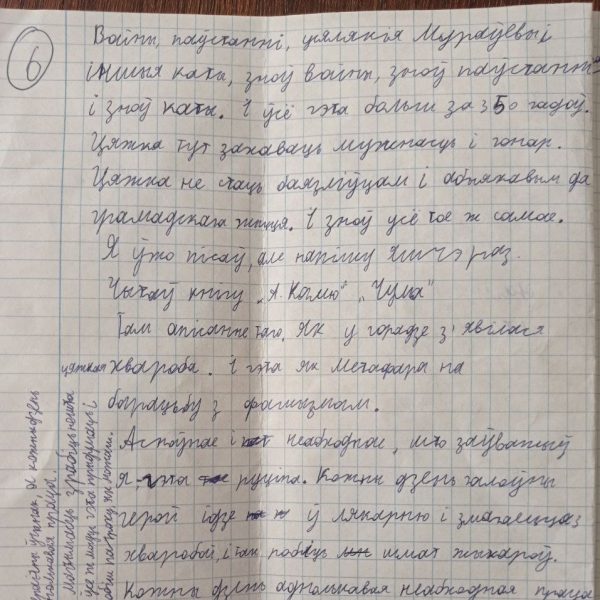 6
Войны, паўстанні, цяляння Мураўёвы і
іншыя каты, зноў войны, зноў паўстанні
і зноў каты. І ўсё гэта больш за 350 гадоў.
Цяжка тут захаваць мужнасць і гонар.
Цяжка не стаць баязліўцам і абыякавым да
грамадскага жыцця. І зноў усё тое ж самае.
Я ўжо пісаў, але напішу яшчэ раз.
Чытаў кнігу „А. Камю" „Чума"
Там апісанне таго, як у горадзе з'явілася
цяжкая хвароба. І гэта як метафара на
барацьбу з фашызмам.
Асноўнае і неабходнае, што заўважыў
я - гэта руціна. Кожны дзень галоўны
герой ідзе ў лякарню і змагаецца з
хваробай, і так робіць шмат жыхароў.
Кожны дзень аднолькавая неабходная праца
кожны дзень
магчымасць зрабіць нешта
гэта прыдумаць і